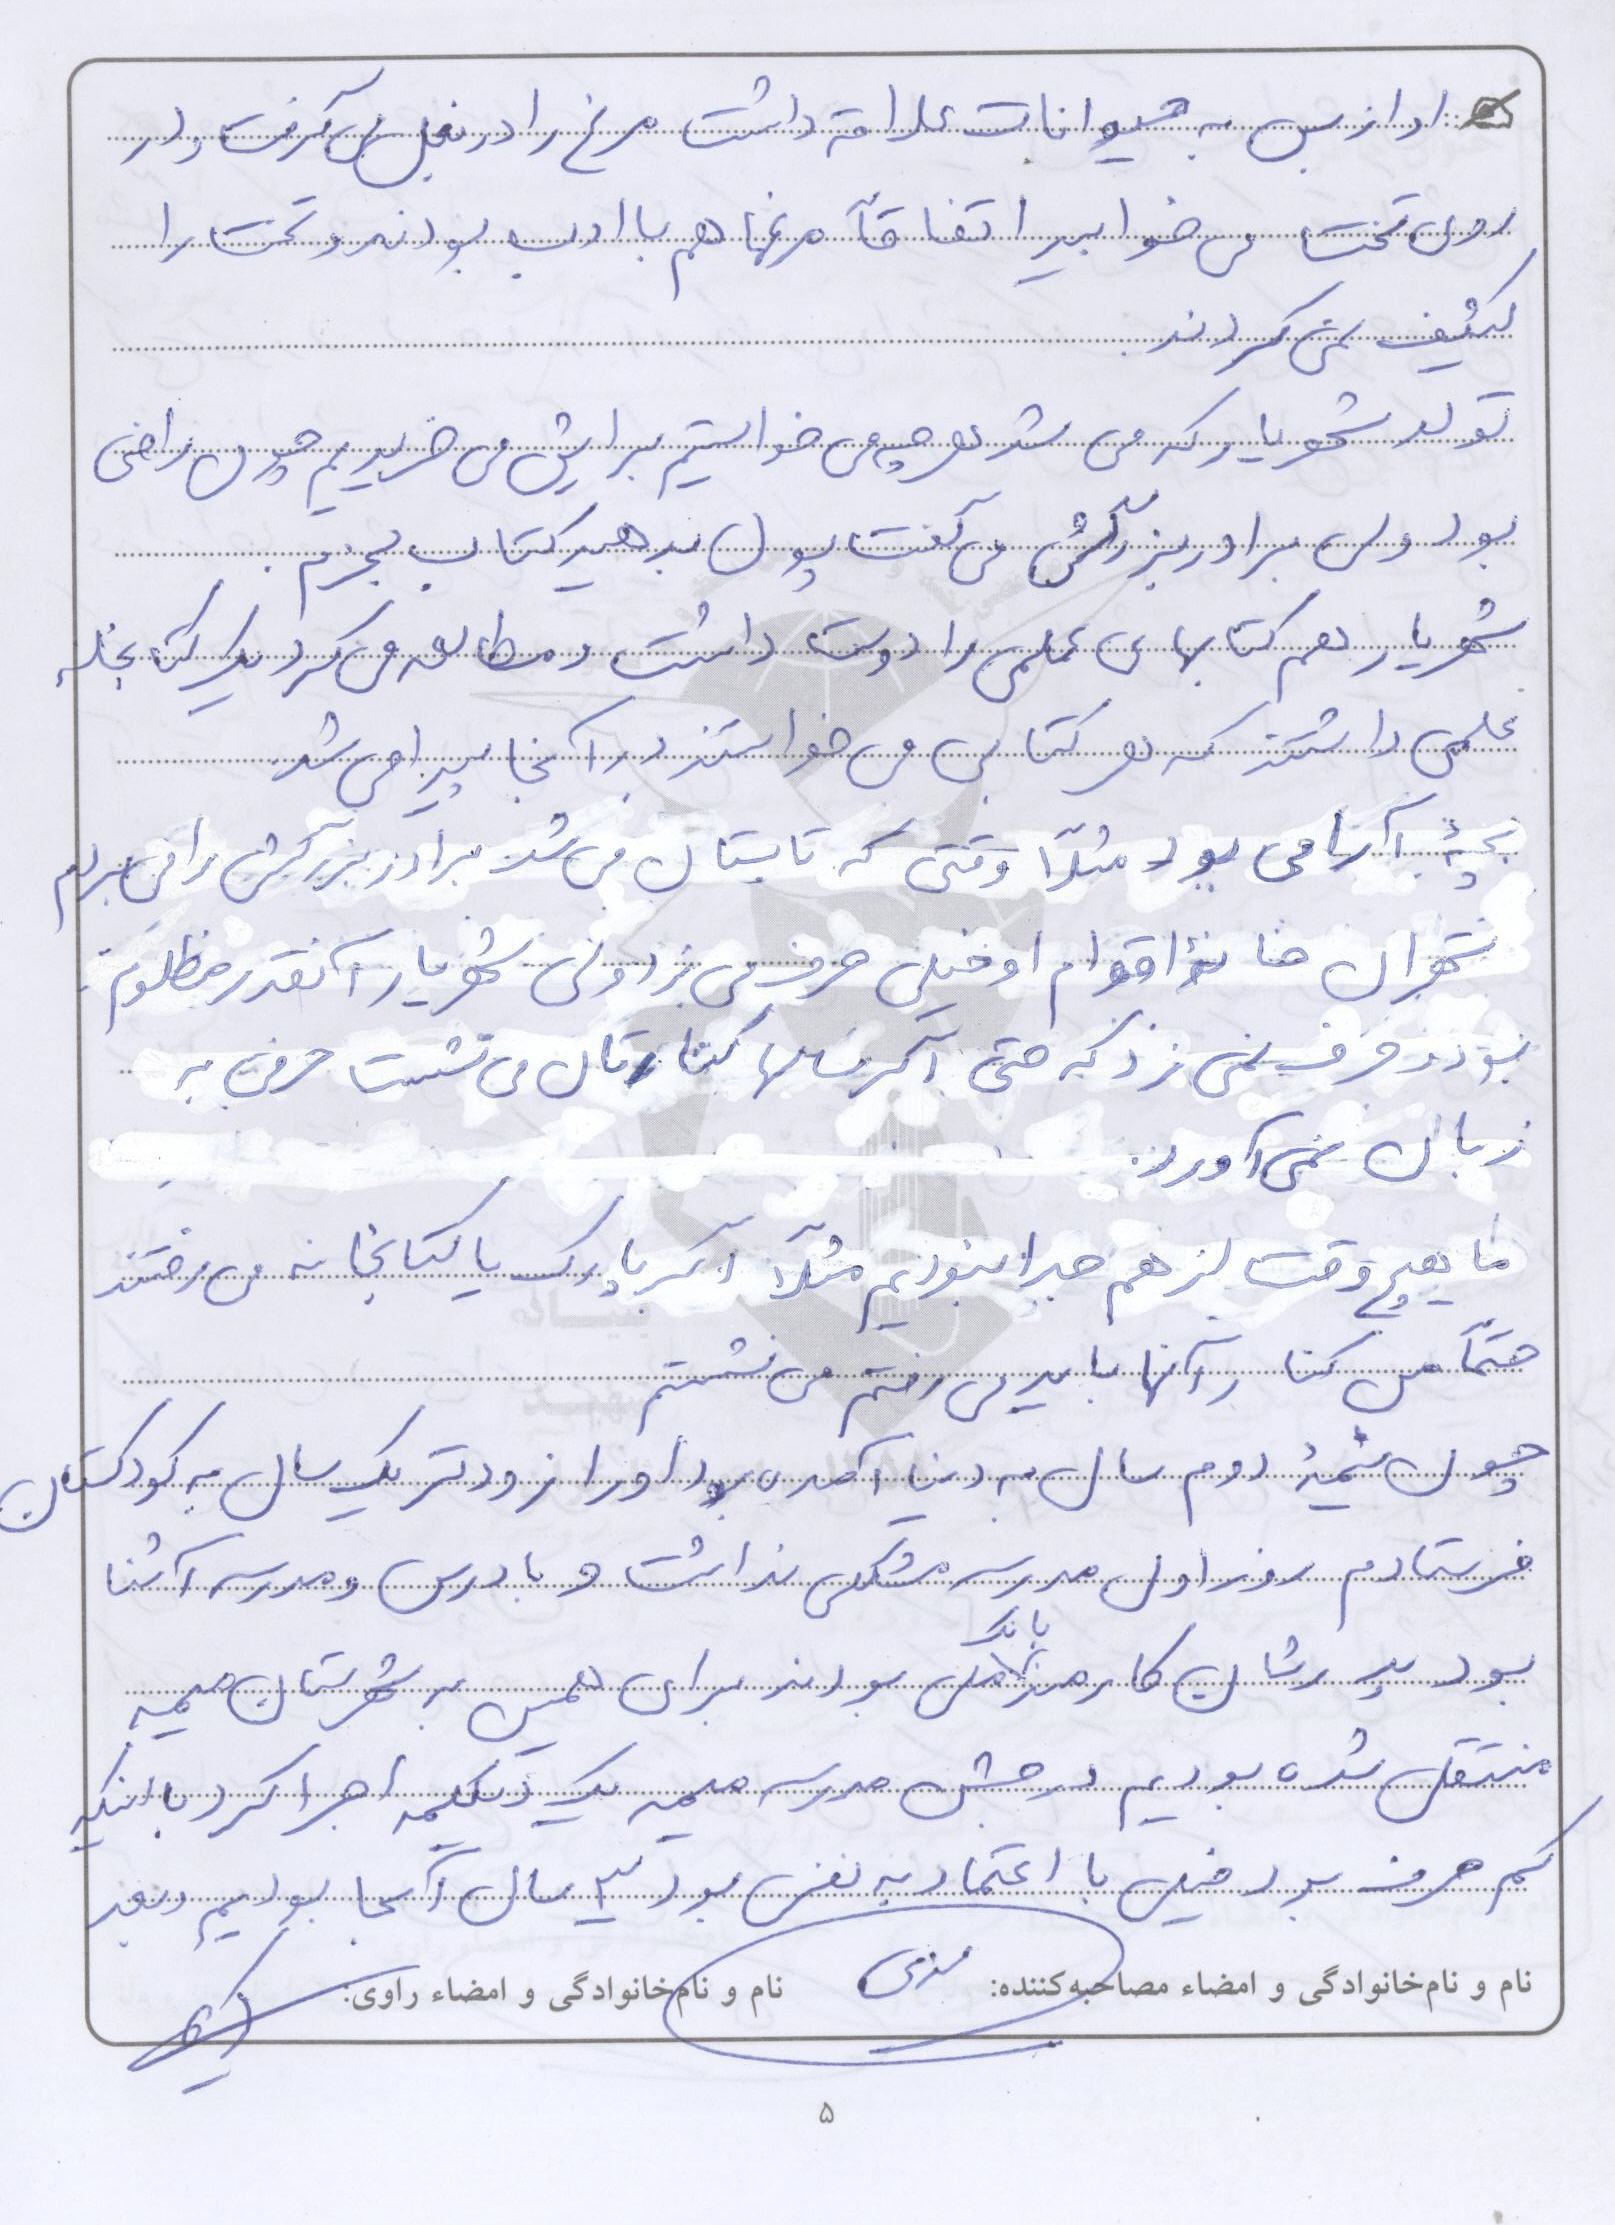 او از بس به حیوانات علاقه داشت مرغ را در بغل می گرفت و در
روی تخت می خوابید اتفاقاً مرغها هم با ادب بودند و تخت را
کثیف نمی کردند.
تولد شهریار که می شد هر چه می خواستیم برایش می خریدیم چون راضی
بود ولی برادر بزرگش می گفت پول بدهید کتاب بخرم.
شهریار هم کتابهای علمی را دوست داشت و مطالعه می کرد یک کتابخانه
علمی داشتند که هر کتابی می خواستند در آنجا پیدا می شد.
بچهٔ آرامی بود مثلاً وقتی که تابستان می شد برادر بزرگش را می بردم
تهران خانهٔ اقوام او خیلی حرف می زد ولی شهریار آنقدر مظلوم
بود و حرف نمی زد که حتی اگر سالها کنارتان می نشست حرفی به
زبان نمی آورد.
ما هیچ وقت از هم جدا نبودیم مثلاً اگر پارک یا کتابخانه می رفتند
حتماً من کنار آنها باید می رفتم می نشستم
چون نیمهٔ دوم سال به دنیا آمده بود او را زودتر یک سال به کودکستان
فرستادم روز اول مدرسه مشکلی نداشت و با درس و مدرسه آشنا
بود پدرشان کارمند بانک ملی بودند برای همین به شهرستان میمه
منتقل شده بودیم در جشن مدرسه میمه یک دکلمه اجرا کرد با اینکه
کم حرف بود خیلی با اعتماد به نفس بود ۳ سال آنجا بودیم و بعد
نام و نام‌خانوادگی و امضاء مصاحبه‌کننده: نام و نام‌خانوادگی و امضاء راوی:
۵